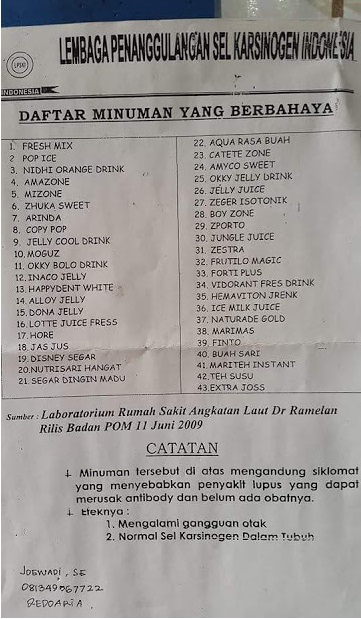 LEMBAGA PENANGGULANGAN SEL KARSINOGEN INDONESIA
INDONESIA
DAFTAR MINUMAN YANG BERBAHAYA
1. FRESH MIX
2 POP ICE
3. NIDHI ORANGE DRINK
4. AMAZONE
5. MIZONE
6. ZHUKA SWEET
7. ARINDA
8. COPY POP
9. JELLY COOL DRINK
10. MOGUZ
11. OKKY BOLO DRINK
12. INACO JELLY
13. HAPPYDENT WHITE
14. ALLOY JELLY
15. DONA JELLY
16. LOTTE JUICE FRESS
17. HORE
18. JAS JUS
19. DISNEY SEGAR
20. NUTRISARI HANGAT
21. SEGAR DINGIN MADU
22. AQUA RASA BUAH
23. CATETE ZONE
24. AMYCO SWEET
25. OKKY JELLY DRINK
26. JELLY JUICE
27. ZEGER ISOTONIK
28. BOY ZONE
29. ZPORTO
30. JUNGLE JUICE
31. ZESTRA
32. FRUTILO MAGIC
33. FORTI PLUS
34. VIDORANT FRES DRINK
35. HEMAVITON JRENK
36. ICE MILK JUICE
37. NATURADE GOLD
38. MARIMAS
39. FINTO
40. BUAH SARI
41. MARITEH INSTANT
42. TEH SUSU
43. EXTRA JOSS
Sumber : Laboratorium Rumah Sakit Angkatan Laut Dr Ramelan
Rilis Badan POM 11 Juni 2009
CATATAN
Minuman tersebut di atas mengandung siklomat
yang menyebabkan penyakit lupus yang dapat
merusak antibody dan belum ada obatnya.
Efeknya :
1. Mengalami gangguan otak
2. Normal Sel Karsinogen Dalam Tubuh
JOEWADI, SE
081349067722